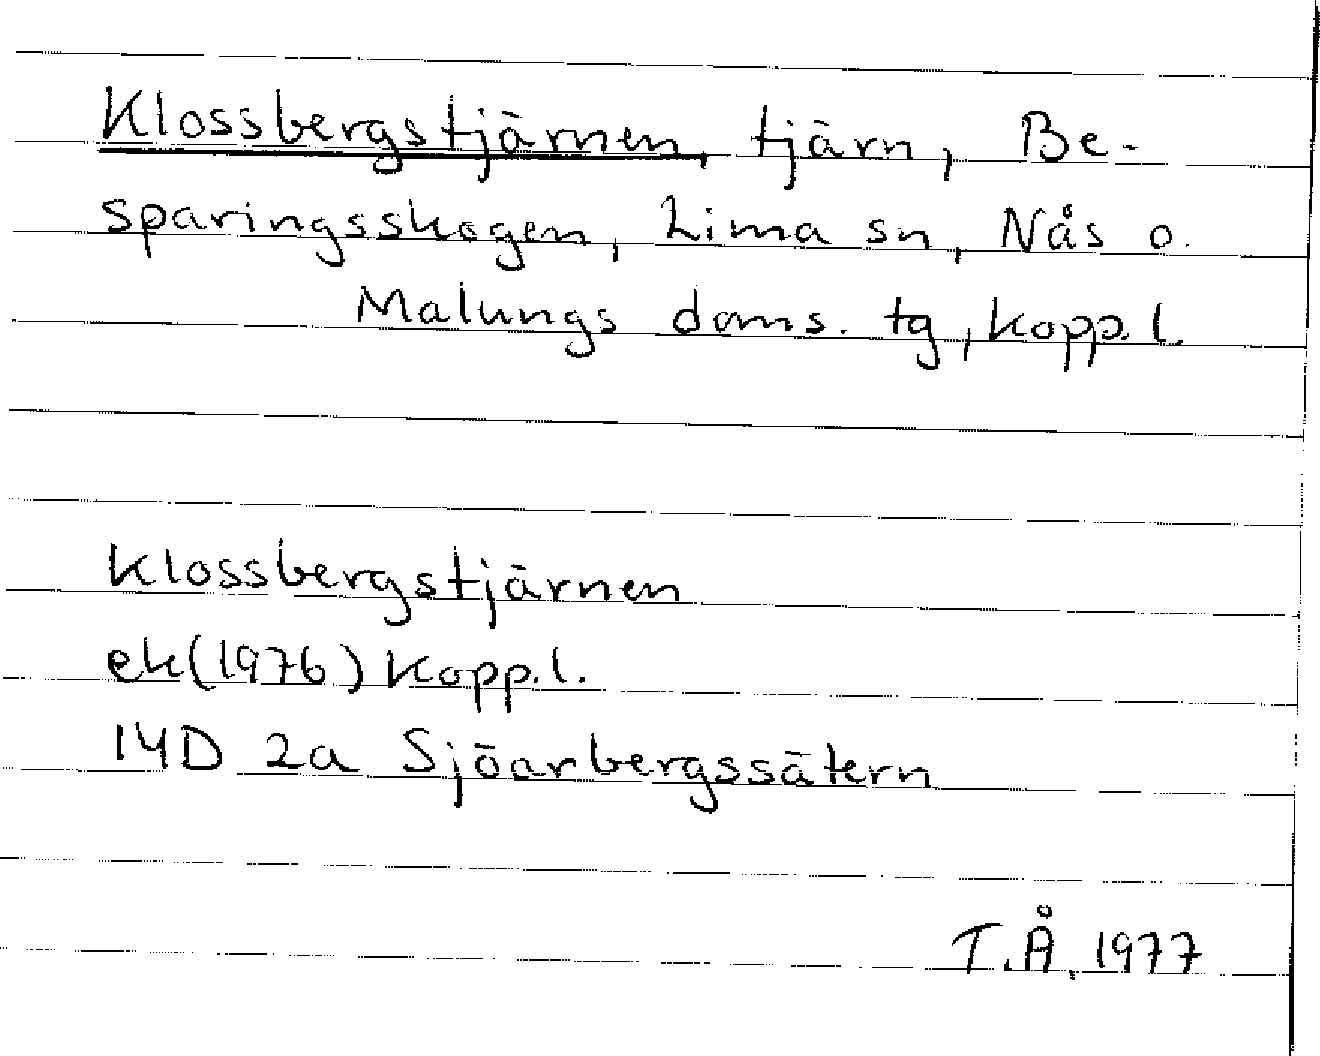 Klossbergstjärnen, tjärn, Be-
sparingsskogen, Lima sn, Nås o.
Malungs doms. tg, Kopp. l.
Klossbergstjärnen
ek(1976) Kopp. l.
14D 2a Sjöarbergssätern
T.Å. 1977